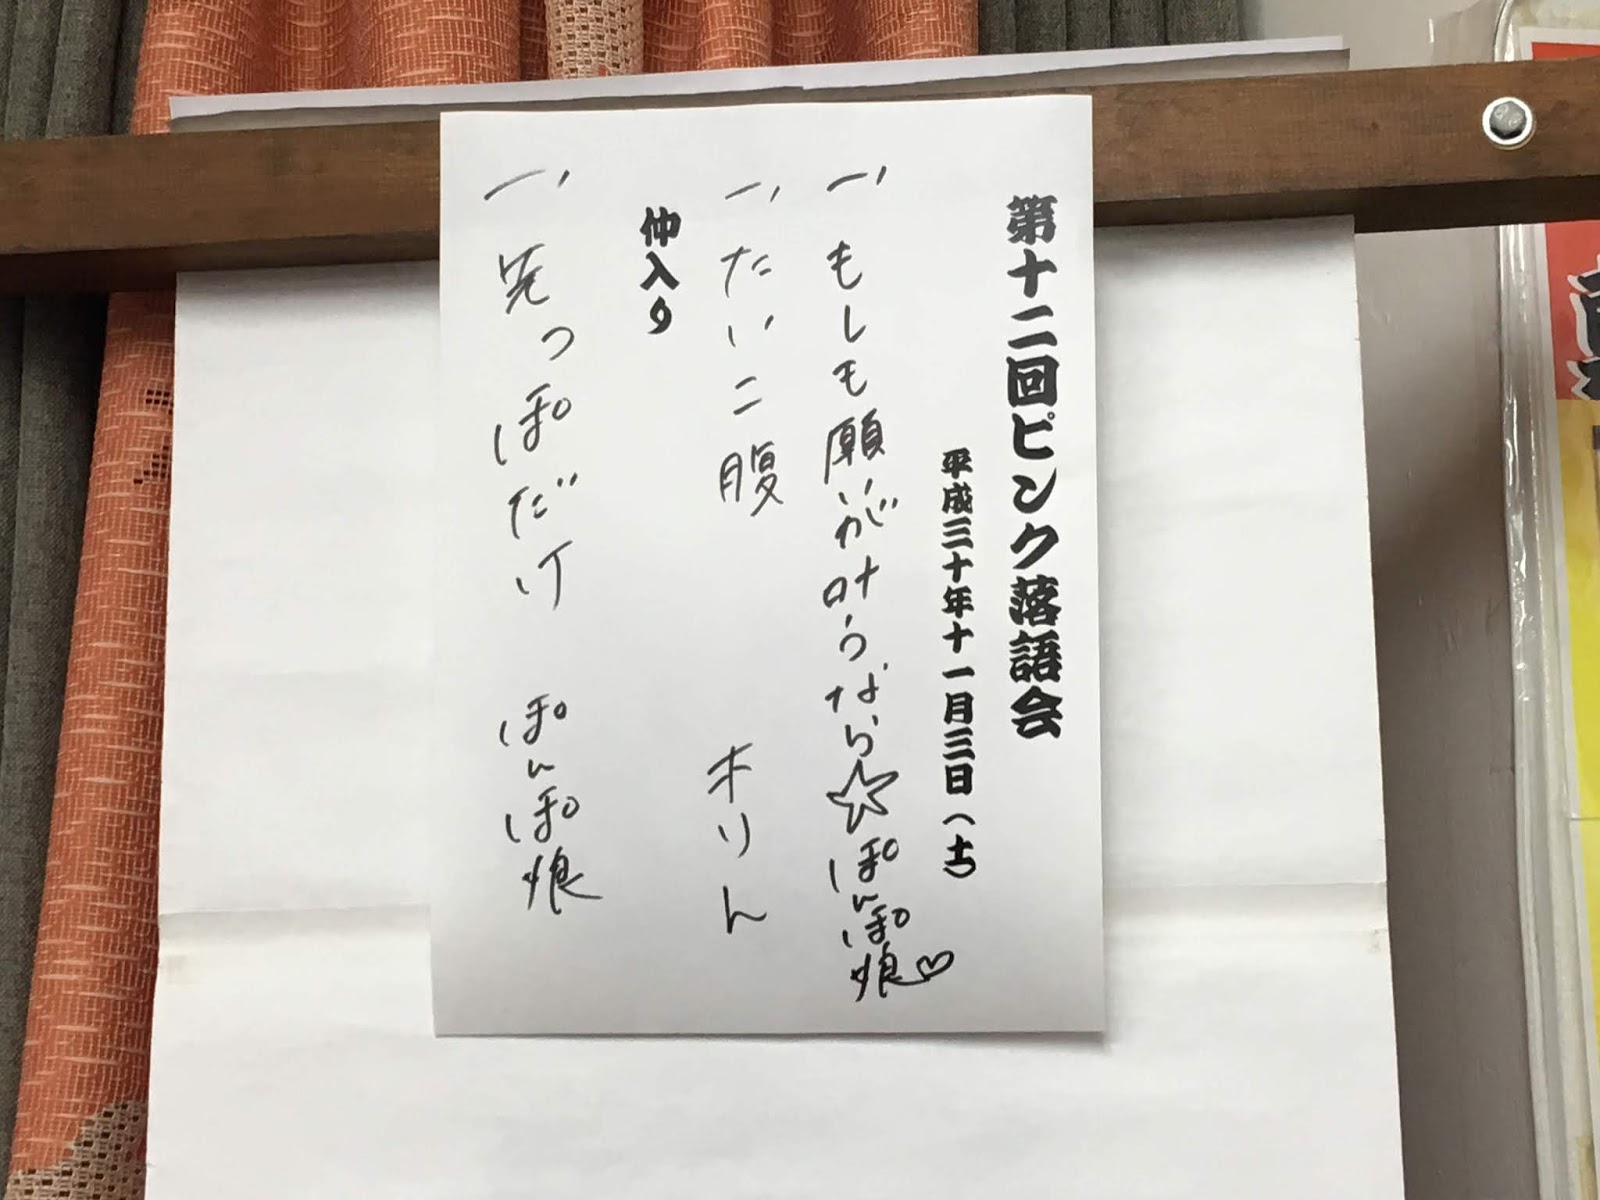 第十二回ピンク落語会
平成三十年十一月三日(土)
一、もしも願いが叶うなら☆ぽんぽ娘♡
一、たいこ腹 木りん
仲入り
一、先っぽだけ ぽんぽ娘